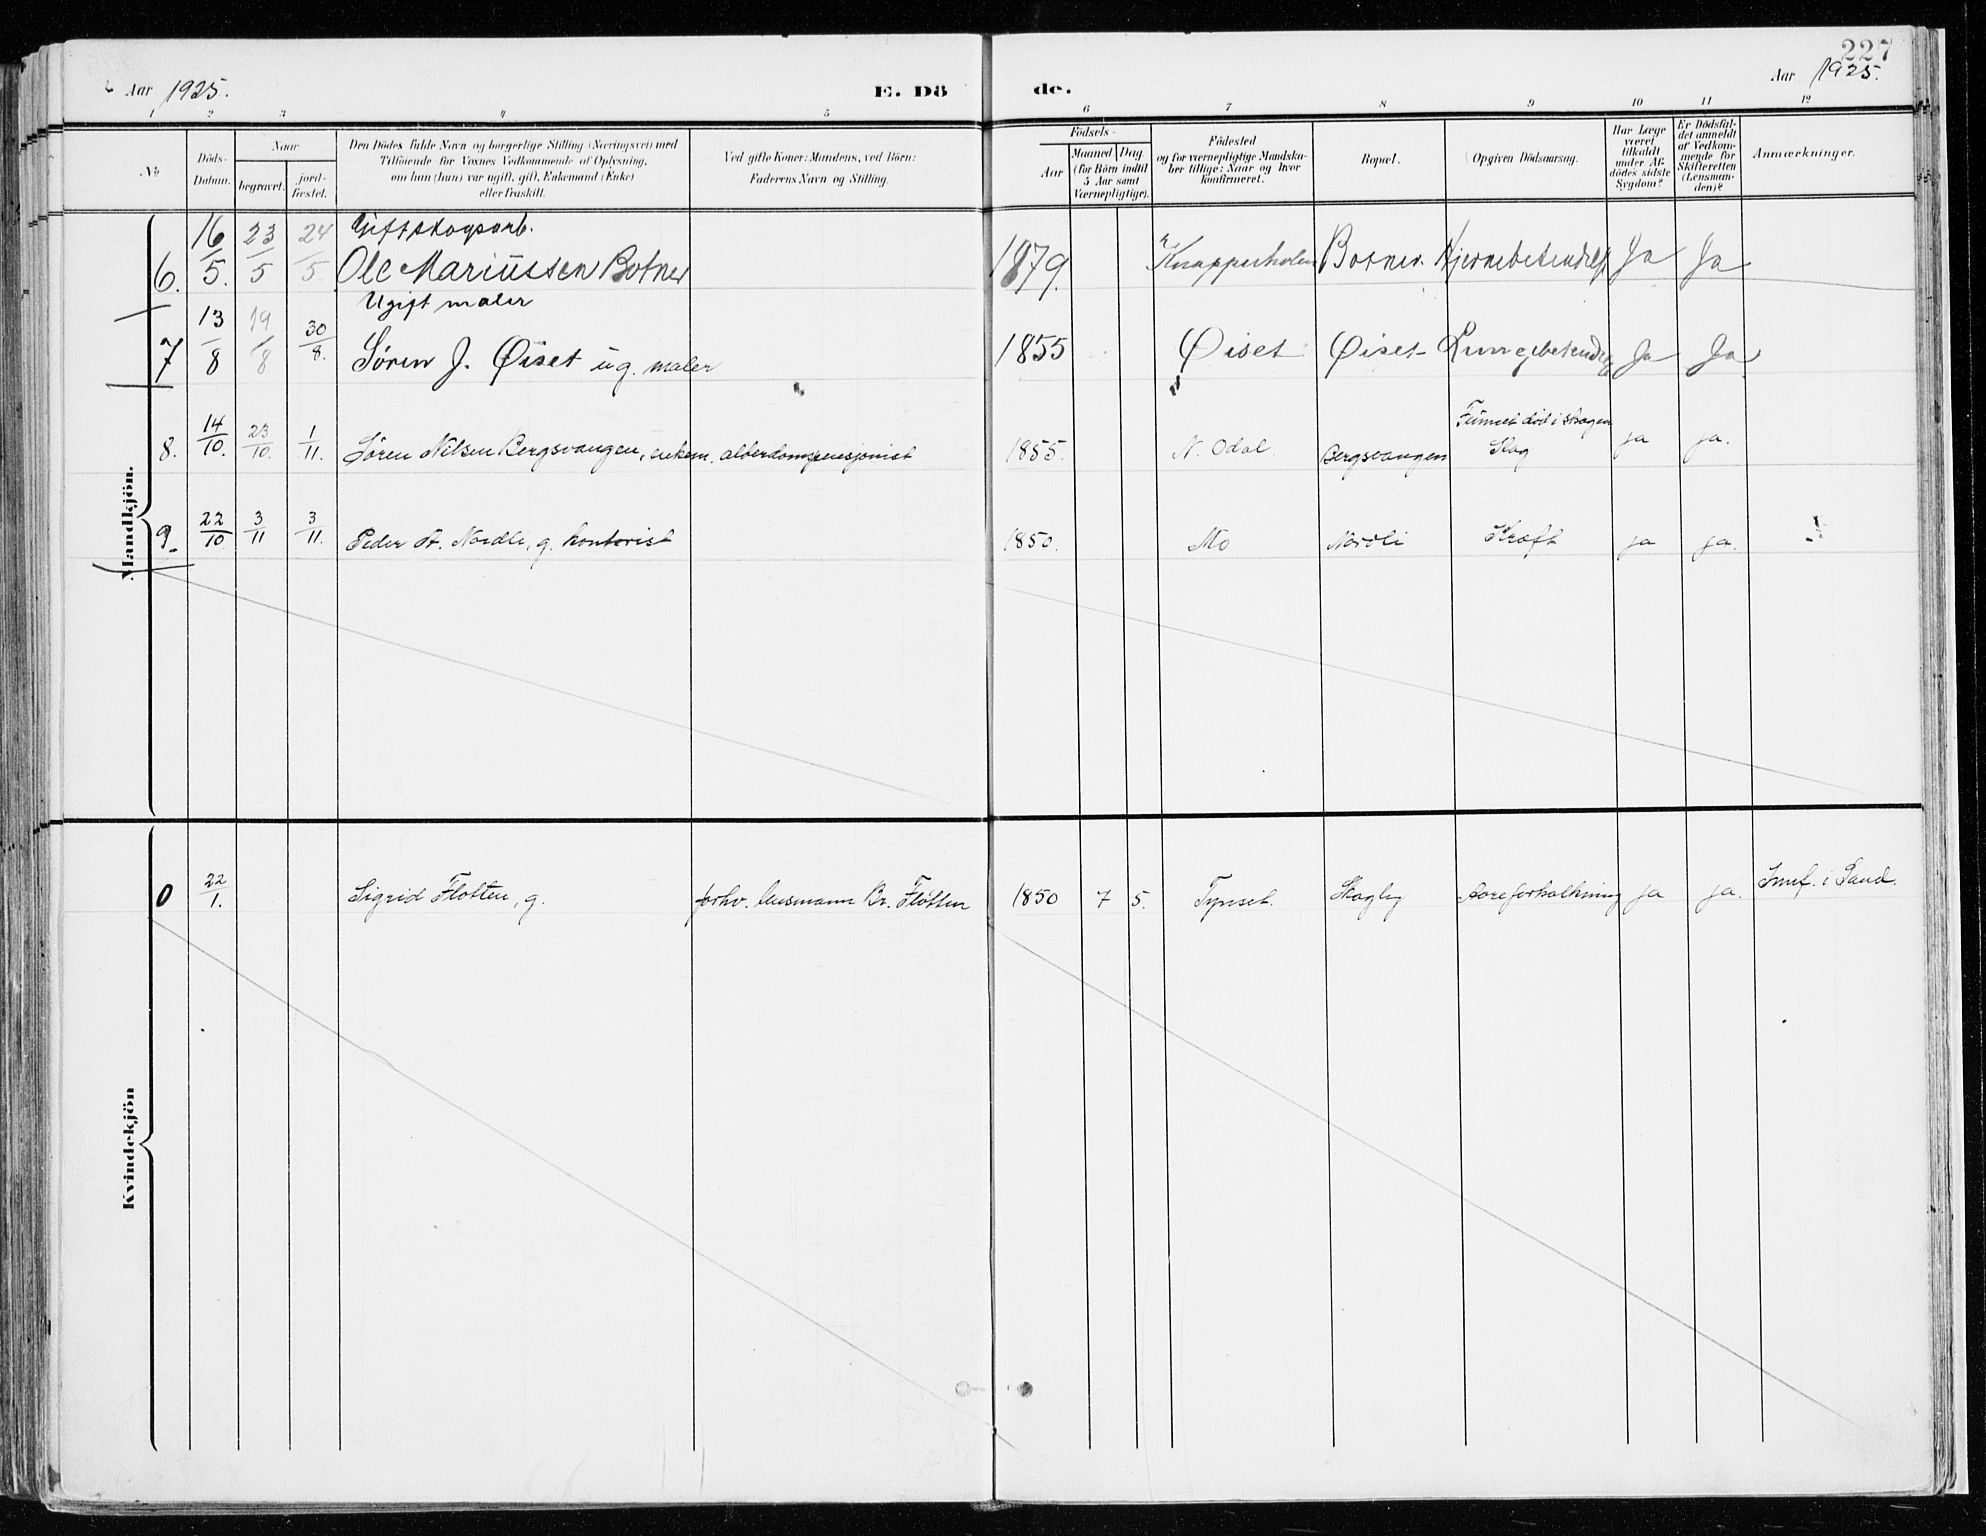 227
Aar 1925. E. Dö de. Aar 1925.
1 2 3 4 5 6 7 8 9 10 11 12
No
Döds-Datum.
Naar
begravet.
jord-fæstet.
Den Dödes fulde Navn og borgerlige Stilling (Næringsvei) med
Tilföiende for Voxnes Vedkommende af Oplysning,
om hun (hun) var ugift, gift, Enkemand (Enke)
eller fraskilt.
Ved gifte Koner: Mandens, ved Börn:
Faderens Navn og Stilling.
Födsels-
Aar
Maaned Dag.
(for Börn indtil
5 Aar samt
Værnepligtige).
Födested
og for værnepligtige Mandska-
ber tillige: Naar og hvor
konfirmeret.
Bopæl.
Opgiven Dödsaarsag.
Har Læge
været
tilkaldt
under Af-
dödes sidste
Sygdom?
Er Dödsfal-
det anmeldt
af Vedkom-
mende for
Skifteretten
(Lensman-
den)?
Anmærkninger.
Mandkjön.
Gift skogsarb.
6. 16/5. 23/5 24/5. Ole Mariussen Botner 1879. Knapperholen Botner. Hjernebetendelse Ja Ja
Ugift maler
7 13/8 19/8 30/8. Søren J. Øiset ug. maler 1855 Øiset Øiset Lungebetendelse Ja Ja
Funnet død i skogen
8. 14/10. 23/10. 1/11. Søren Nilsen Bergsvangen, enkem. alderdomspensjonist 1855. N. Odal. Bergsvangen Slag ja ja.
9. 22/10 3/11 3/11. Peder A. Nordli, g. kontorist 1850. Mo Nordli Kræft ja ja.
Kvindekjön
0 22/1. Sigrid Fløtten, g. forhv. lensmann Br. Fløtten 1850 7 5. Tynset. Skogly Aareforkalkning ja ja. Innf. i Sand.